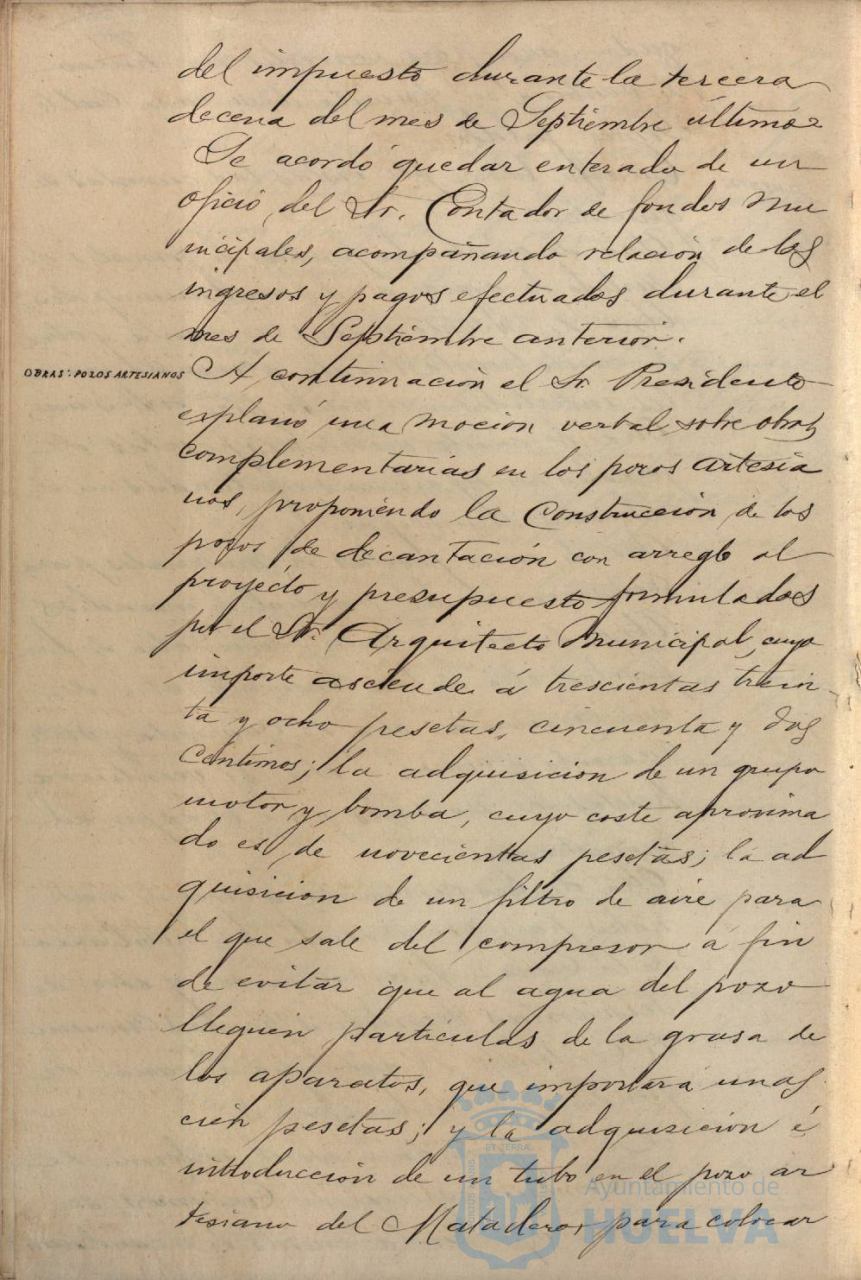 del impuesto durante la tercera
decena del mes de Septiembre último.
Se acordó quedar enterado de un
oficio, del Sr. Contador de fondos Mu
nicipales, acompañando relación de los
ingresos y pagos efectuados durante el
mes de Septiembre anterior.
OBRAS: POZOS ARTESIANOS
A continuación el Sr. Presidente
explanó una moción verbal sobre obras
complementarias en los pozos artesia
nos, proponiendo la Construcción de los
pozos de decantación con arreglo al
proyécto y presupuesto formulados
por el Sr. Arquitecto Municipal, cuyo
importe asciende á trescientas trein-
ta y ocho pesetas, cincuenta y dos
Céntimos; la adquisicion de un grupo
motor y bomba, cuyo coste aproxima
do es de novecientas pesetas; la ad
quisicion de un filtro de aire para
el que sale del compresor á fin
de evitar que al agua del pozo
lleguen partículas de la grasa de
los aparatos, que importará unas
cien pesetas; y la adquisicion é
introducción de un tubo en el pozo ar
tesiano del Matadero, para colocar
ET TERRAE
Ayuntamiento de
HUELVA